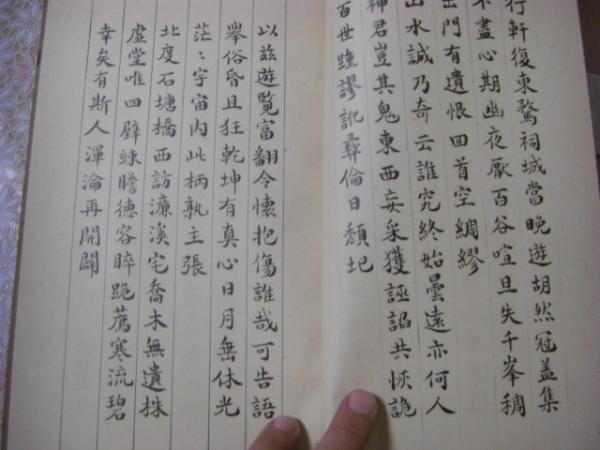 行軒復東騖祠城當晚遊胡然冠盖集
不盡心期幽夜厭百谷喧且失千峯稠
出門有遺恨回首空綢繆
山水誠乃奇云誰究終始曇遠亦何人
神君豈其鬼東西妄采獲誣諂共恢詭
百世踵謬訛彛倫日頹圮
以兹遊覽富翻令懷抱傷誰哉可告語
舉俗昏且狂乾坤有真心日月無休光
茫〻宇宙內此柄孰主張
北度石塘橋西訪濂溪宅喬木無遺株
虛堂唯四壁竦瞻德容睟跪薦寒流碧
幸矣有斯人渾淪再開闢